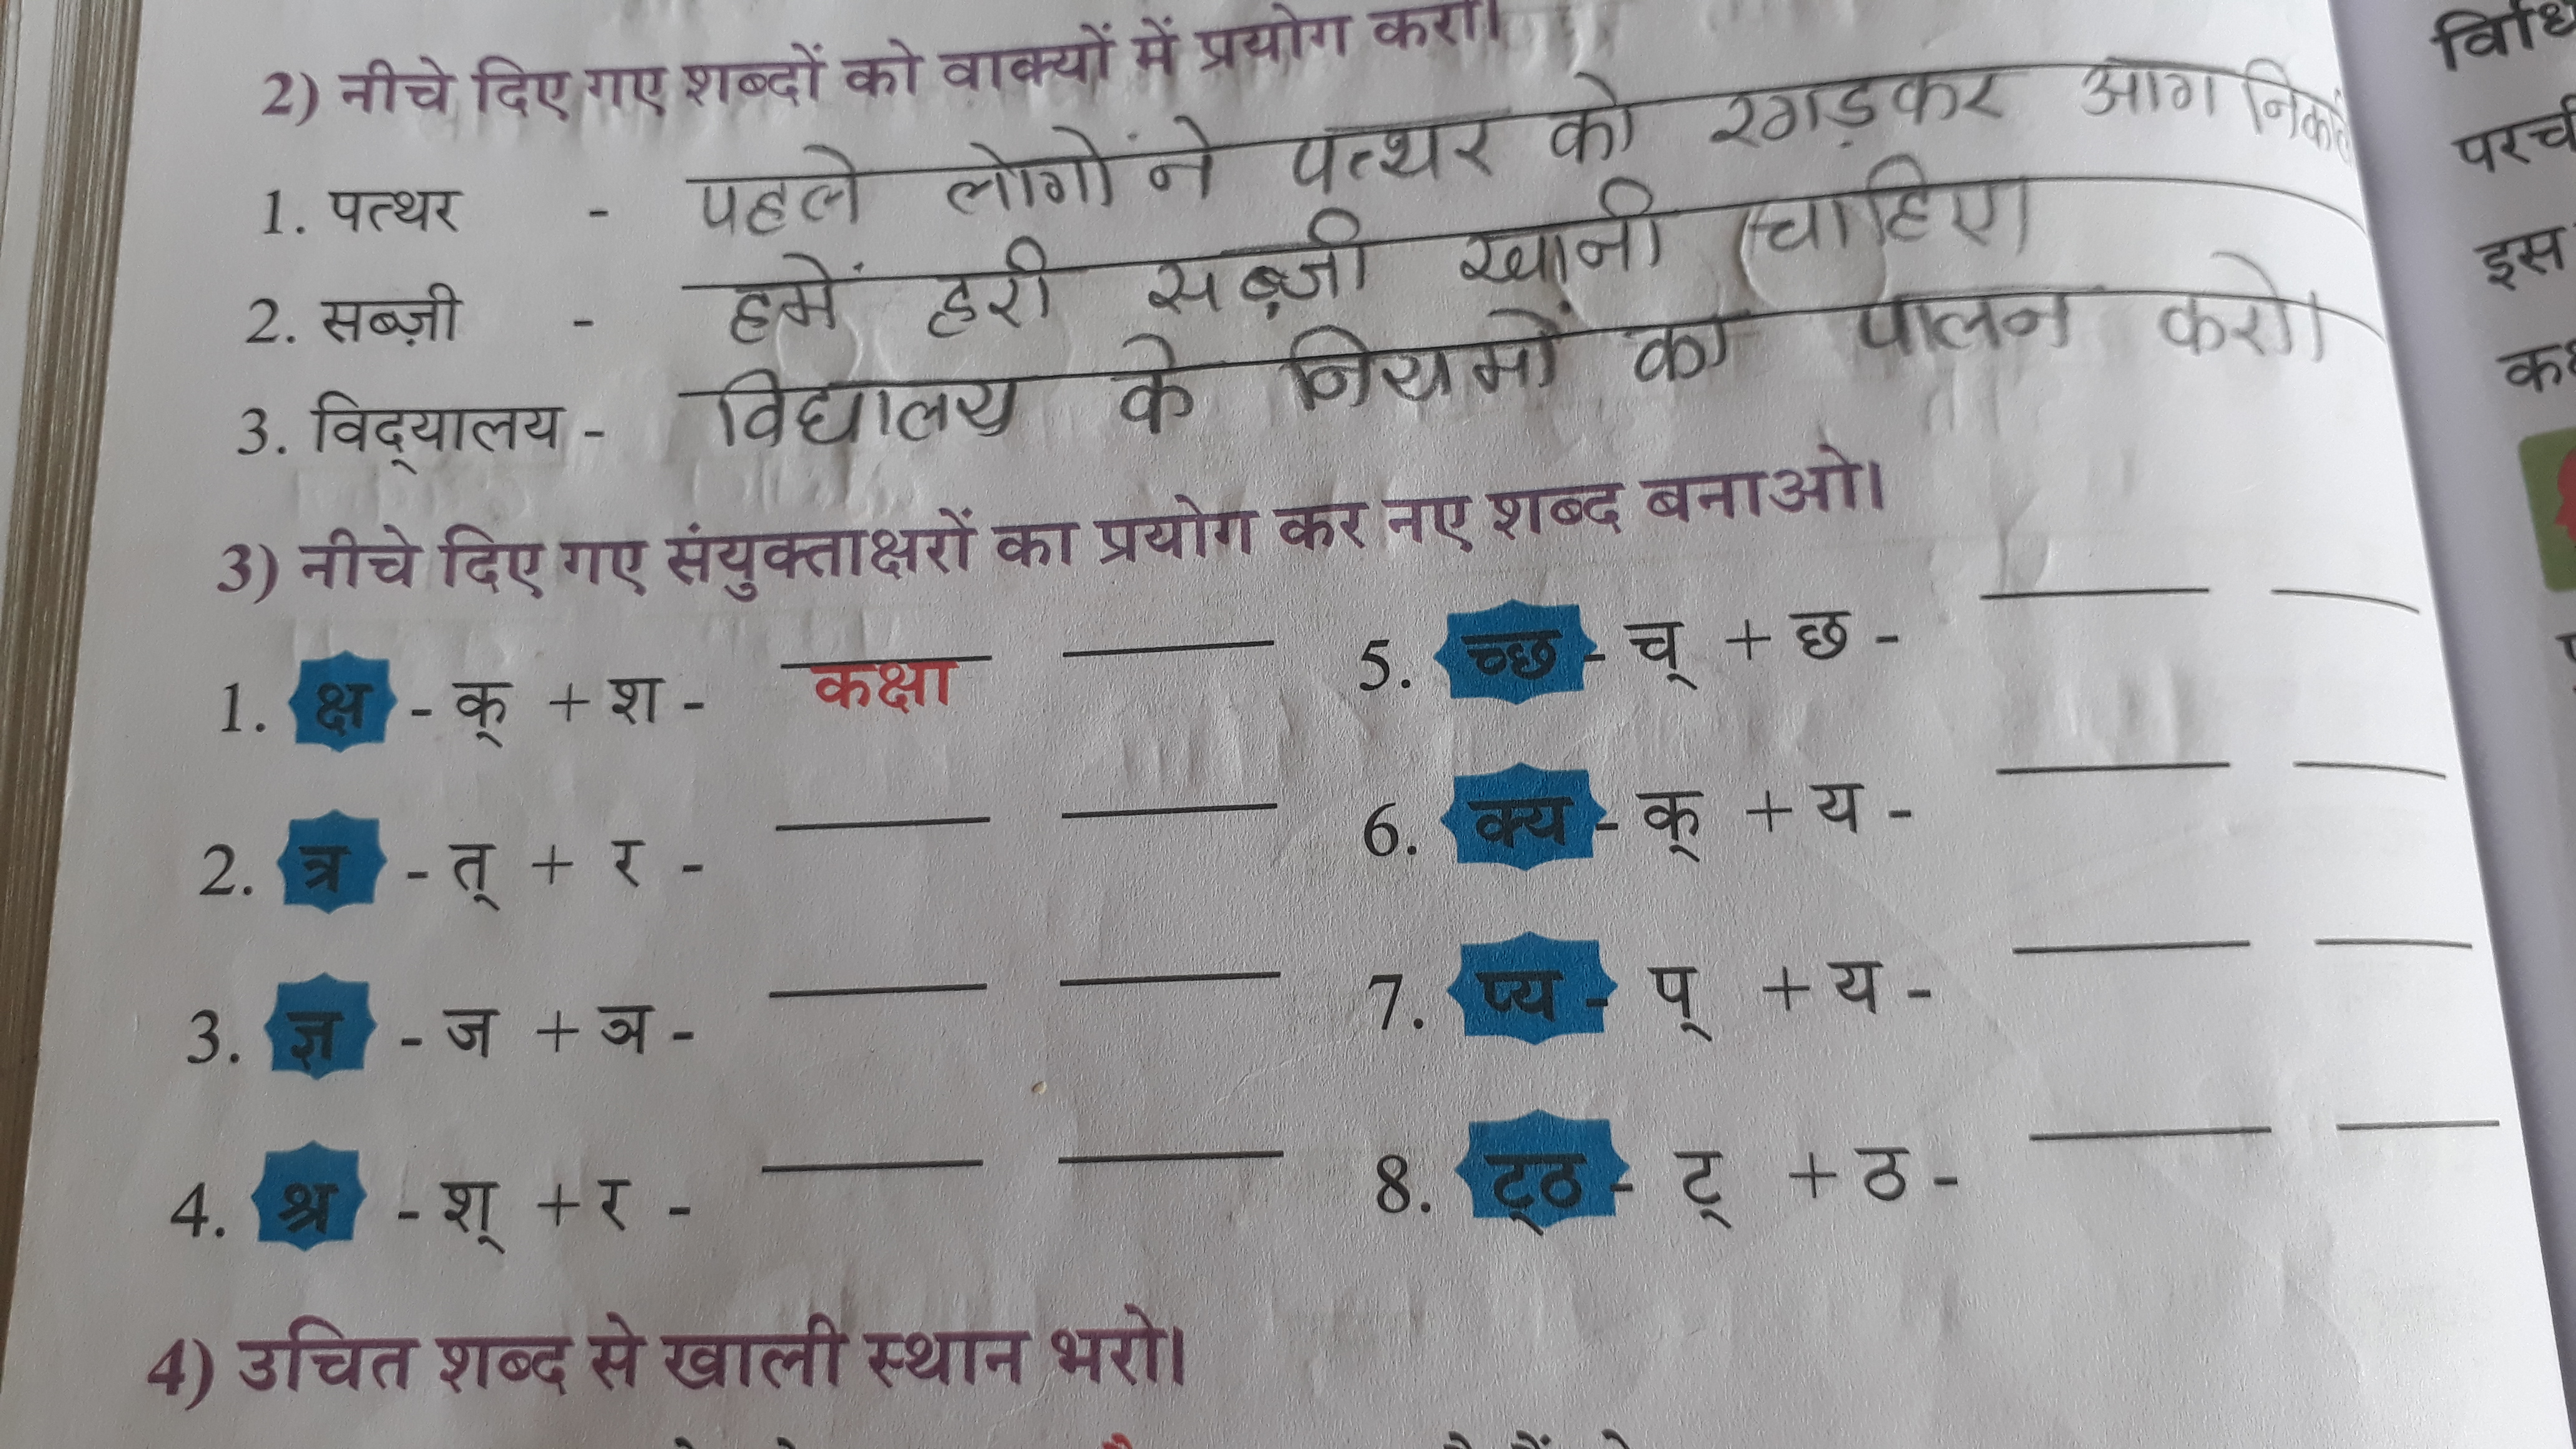 2) नीचे दिए गए शब्दों को वाक्यों में प्रयोग करो।
1. पत्थर - पहले लोगों ने पत्थर को रगड़कर आग
2. सब्ज़ी - हमें हरी सब्ज़ी खानी चाहिए।
3. विद्‌यालय - विद्यालय के नियमों का पालन करो।
3) नीचे दिए गए संयुक्ताक्षरों का प्रयोग कर नए शब्द बनाओ।
1. क्ष - क् + श - कक्षा
2. त्र - त् + र -
3. ज्ञ - ज + ञ -
4. श्र - श् + र -
5. च्छ - च् + छ -
6. क्य - क् + य -
7. प्य - प् + य -
8. ट्‌ठ - ट् + ठ -
4) उचित शब्द से खाली स्थान भरो।
इस